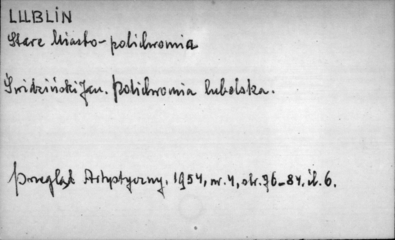 LUBLIN
Stare Miasto - polichromia
Świdziński Jan. Polichromia lubelska.
Przegląd Artystyczny, 1954, nr. 4, str. 76-84, il. 6.